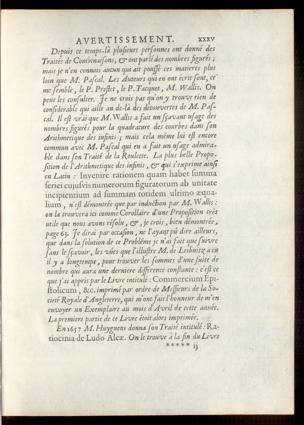 AVERTISSEMENT. xxxv
Depuis ce temps-là plusieurs personnes ont donné des
Traités de Combinaisons, & ont parlé des nombres figurés;
mais je n'en connois aucun qui ait poussé ces matieres plus
loin que M. Pascal. Les Auteurs qui en ont écrit sont, ce
me semble, le P. Prestet, le P. Tacquet, M. Wallis. On
peut les consulter. Je ne crois pas qu'on y trouve rien de
considerable qui aille au de-là des découvertes de M. Pas-
cal. Il est vrai que M. Wallis a fait un sçavant usage des
nombres figurés pour la quadrature des courbes dans son
Arithmetique des infinis; mais cela même lui est encore
commun avec M. Pascal qui en a fait un usage admira-
ble dans son Traité de la Roulette. La plus belle Propo-
sition de l'Arithmetique des infinis, & qui s'exprime ainsi
en Latin: Invenire rationem quam habet summa
seriei cujusvis numerorum figuratorum ab unitate
incipientium ad summam totidem ultimo æqua-
lium, n'est démontrée que par induction par M. Wallis:
on la trouvera ici comme Corollaire d'une Proposition très
utile que nous avons résolu, & je crois, bien démontrée,
page 65. Je dirai par occasion, ne l'ayant pû dire ailleurs,
que dans la solution de ce Problême je n'ai fait que suivre
sans le sçavoir, les vûes que l'illustre M. de Leibnitz a eu
il y a longtemps, pour trouver les sommes d'une suite de
nombre qui aura une derniere difference constante: c'est ce
que j'ai appris par le Livre intitulé: Commercium Epi-
stolicum, &c. imprimé par ordre de Messieurs de la So-
cieté Royale d'Angleterre, qui m'ont fait l'honneur de m'en
envoyer un Exemplaire au mois d'Avril de cette année.
La premiere partie de ce Livre étoit alors imprimée.
En 1657 M. Huyghens donna son Traité intitulé: Ra-
tiocinia de Ludo Aleæ. On le trouve à la fin du Livre
***** ij